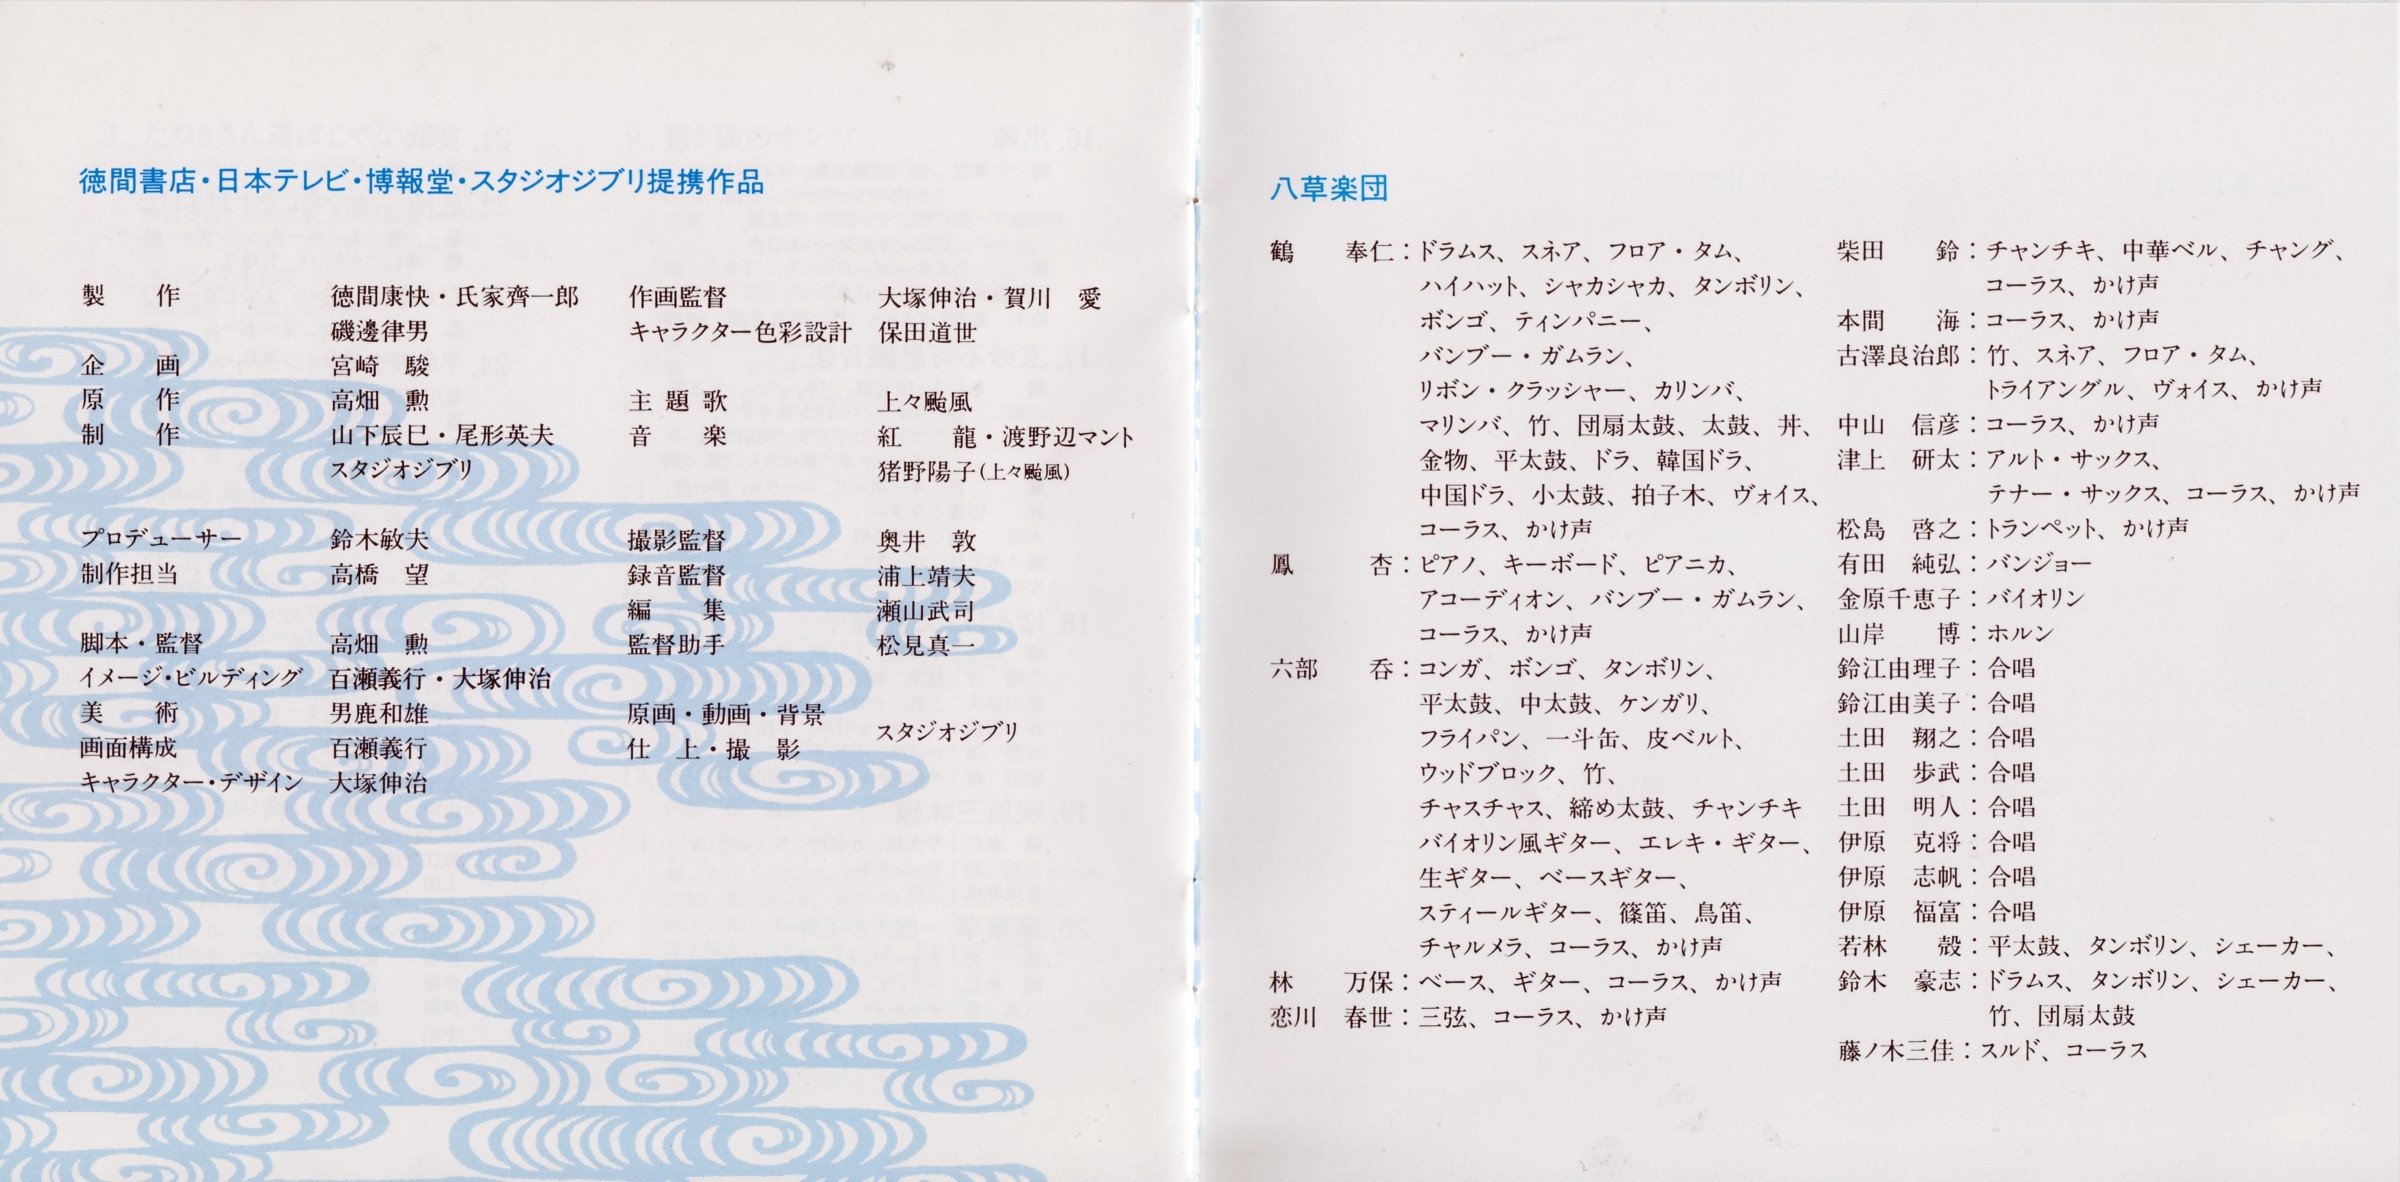 徳間書店・日本テレビ・博報堂・スタジオジブリ提携作品
製　作　徳間康快・氏家齊一郎
磯邊律男
企　画　宮崎　駿
原　作　高畑　勲
制　作　山下辰巳・尾形英夫
スタジオジブリ
プロデューサー　鈴木敏夫
制作担当　高橋　望
脚本・監督　高畑　勲
イメージ・ビルディング　百瀬義行・大塚伸治
美　術　男鹿和雄
画面構成　百瀬義行
キャラクター・デザイン　大塚伸治
作画監督　大塚伸治・賀川　愛
キャラクター色彩設計　保田道世
主題歌　上々颱風
音　楽　紅　龍・渡野辺マント
猪野陽子(上々颱風)
撮影監督　奥井　敦
録音監督　浦上靖夫
編　集　瀬山武司
監督助手　松見真一
原画・動画・背景
仕　上・撮　影
スタジオジブリ
八草楽団
鶴　奉仁：ドラムス、スネア、フロア・タム、
ハイハット、シャカシャカ、タンボリン、
ボンゴ、ティンパニー、
バンブー・ガムラン、
リボン・クラッシャー、カリンバ、
マリンバ、竹、団扇太鼓、太鼓、丼、
金物、平太鼓、ドラ、韓国ドラ、
中国ドラ、小太鼓、拍子木、ヴォイス、
コーラス、かけ声
鳳　杏：ピアノ、キーボード、ピアニカ、
アコーディオン、バンブー・ガムラン、
コーラス、かけ声
六部　呑：コンガ、ボンゴ、タンボリン、
平太鼓、中太鼓、ケンガリ、
フライパン、一斗缶、皮ベルト、
ウッドブロック、竹、
チャスチャス、締め太鼓、チャンチキ
バイオリン風ギター、エレキ・ギター、
生ギター、ベースギター、
スティールギター、篠笛、鳥笛、
チャルメラ、コーラス、かけ声
林　万保：ベース、ギター、コーラス、かけ声
恋川　春世：三弦、コーラス、かけ声
柴田　鈴：チャンチキ、中華ベル、チャング、
コーラス、かけ声
本間　海：コーラス、かけ声
古澤良治郎：竹、スネア、フロア・タム、
トライアングル、ヴォイス、かけ声
中山　信彦：コーラス、かけ声
津上　研太：アルト・サックス、
テナー・サックス、コーラス、かけ声
松島　啓之：トランペット、かけ声
有田　純弘：バンジョー
金原千恵子：バイオリン
山岸　博：ホルン
鈴江由理子：合唱
鈴江由美子：合唱
土田　翔之：合唱
土田　歩武：合唱
土田　明人：合唱
伊原　克将：合唱
伊原　志帆：合唱
伊原　福富：合唱
若林　殻：平太鼓、タンボリン、シェーカー、
鈴木　豪志：ドラムス、タンボリン、シェーカー、
竹、団扇太鼓
藤ノ木三佳：スルド、コーラス